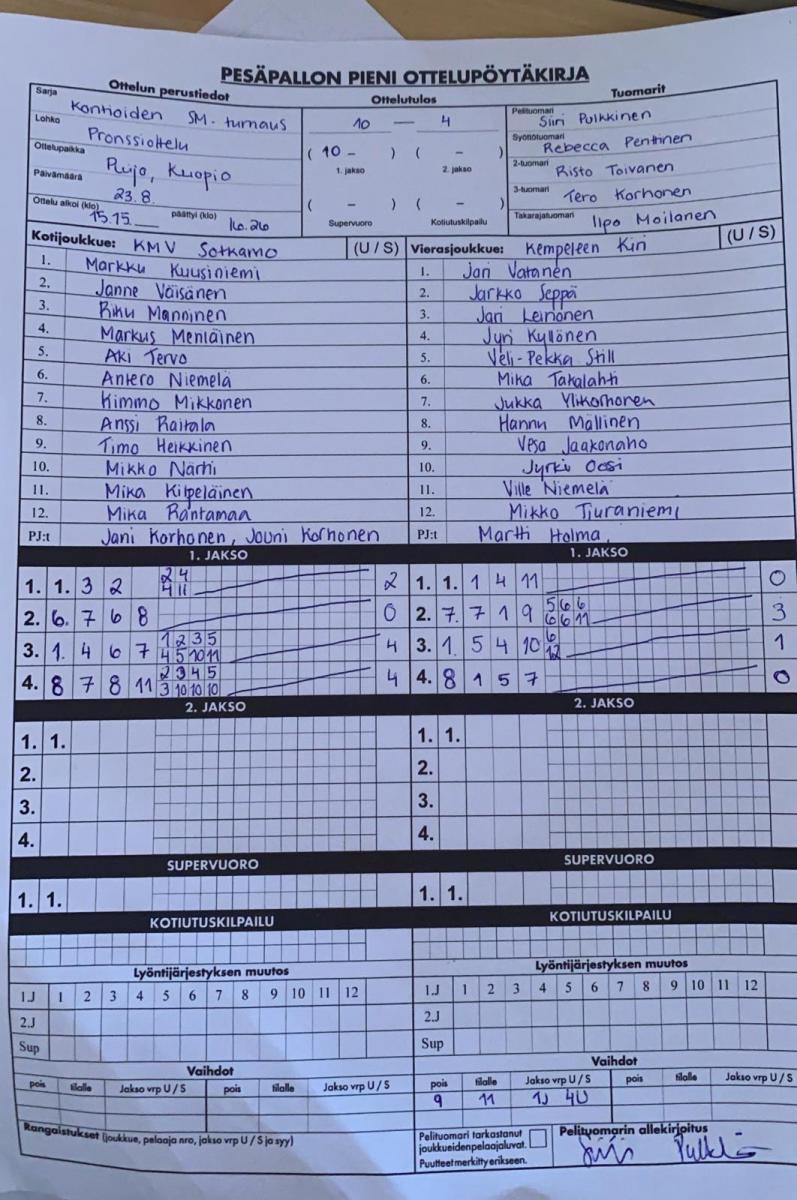 PESÄPALLON PIENI OTTELUPÖYTÄKIRJA
Ottelun perustiedot
Sarja Kontioiden SM-turnaus
Lohko Pronssiottelu
Ottelupaikka Puijo, Kuopio
Päivämäärä 23.8.
Ottelu alkoi (klo) 15.15 päättyi (klo) 16.26
Ottelutulos
10 — 4
( 10 - ) ( - )
1. jakso 2. jakso
( - ) ( - )
Supervuoro Kotiutuskilpailu
Tuomarit
Pelituomari Siiri Pulkkinen
Syöttötuomari Rebecca Penttinen
2-tuomari Risto Toivanen
3-tuomari Tero Korhonen
Takarajatuomari Ilpo Moilanen
Kotijoukkue: KMV Sotkamo (U / S)
1. Markku Kuusiniemi
2. Janne Väisänen
3. Riku Manninen
4. Markus Meriläinen
5. Aki Tervo
6. Antero Niemelä
7. Kimmo Mikkonen
8. Anssi Raitala
9. Timo Heikkinen
10. Mikko Närhi
11. Mika Kilpeläinen
12. Mika Rantamaa
PJ:t Jani Korhonen, Jouni Korhonen
Vierasjoukkue: Kempeleen Kiri (U / S)
1. Jari Vatanen
2. Jarkko Seppä
3. Jari Leinonen
4. Jyri Kyllönen
5. Veli-Pekka Still
6. Mika Takalahti
7. Jukka Ylikorhonen
8. Hannu Mällinen
9. Vesa Jaakonaho
10. Jyrki Oosi
11. Ville Niemelä
12. Mikko Tiuraniemi
PJ:t Martti Holma
1. JAKSO
1. 1. 3 2 2 4 2
4 11
2. 6. 7 6 8 0
3. 1. 4 6 7 1 2 3 5 4
4 5 10 11
4. 8 7 8 11 2 3 4 5 4
3 10 10 10
1. JAKSO
1. 1. 1 4 11 0
2. 7. 7 1 9 5 6 6 3
6 6 11
3. 1. 5 4 10 6 1
12
4. 8 1 5 7 0
2. JAKSO
1. 1.
2.
3.
4.
2. JAKSO
1. 1.
2.
3.
4.
SUPERVUORO
1. 1.
SUPERVUORO
1. 1.
KOTIUTUSKILPAILU
KOTIUTUSKILPAILU
Lyöntijärjestyksen muutos
1.J 1 2 3 4 5 6 7 8 9 10 11 12
2.J
Sup
Lyöntijärjestyksen muutos
1.J 1 2 3 4 5 6 7 8 9 10 11 12
2.J
Sup
Vaihdot
pois tilalle Jakso vrp U / S pois tilalle Jakso vrp U / S
Vaihdot
pois tilalle Jakso vrp U / S pois tilalle Jakso vrp U / S
9 11 1J 4U
Rangaistukset (joukkue, pelaaja nro, jakso vrp U / S ja syy)
Pelituomari tarkastanut
joukkueidenpelaajaluvat.
Puutteet merkitty erikseen.
Pelituomarin allekirjoitus